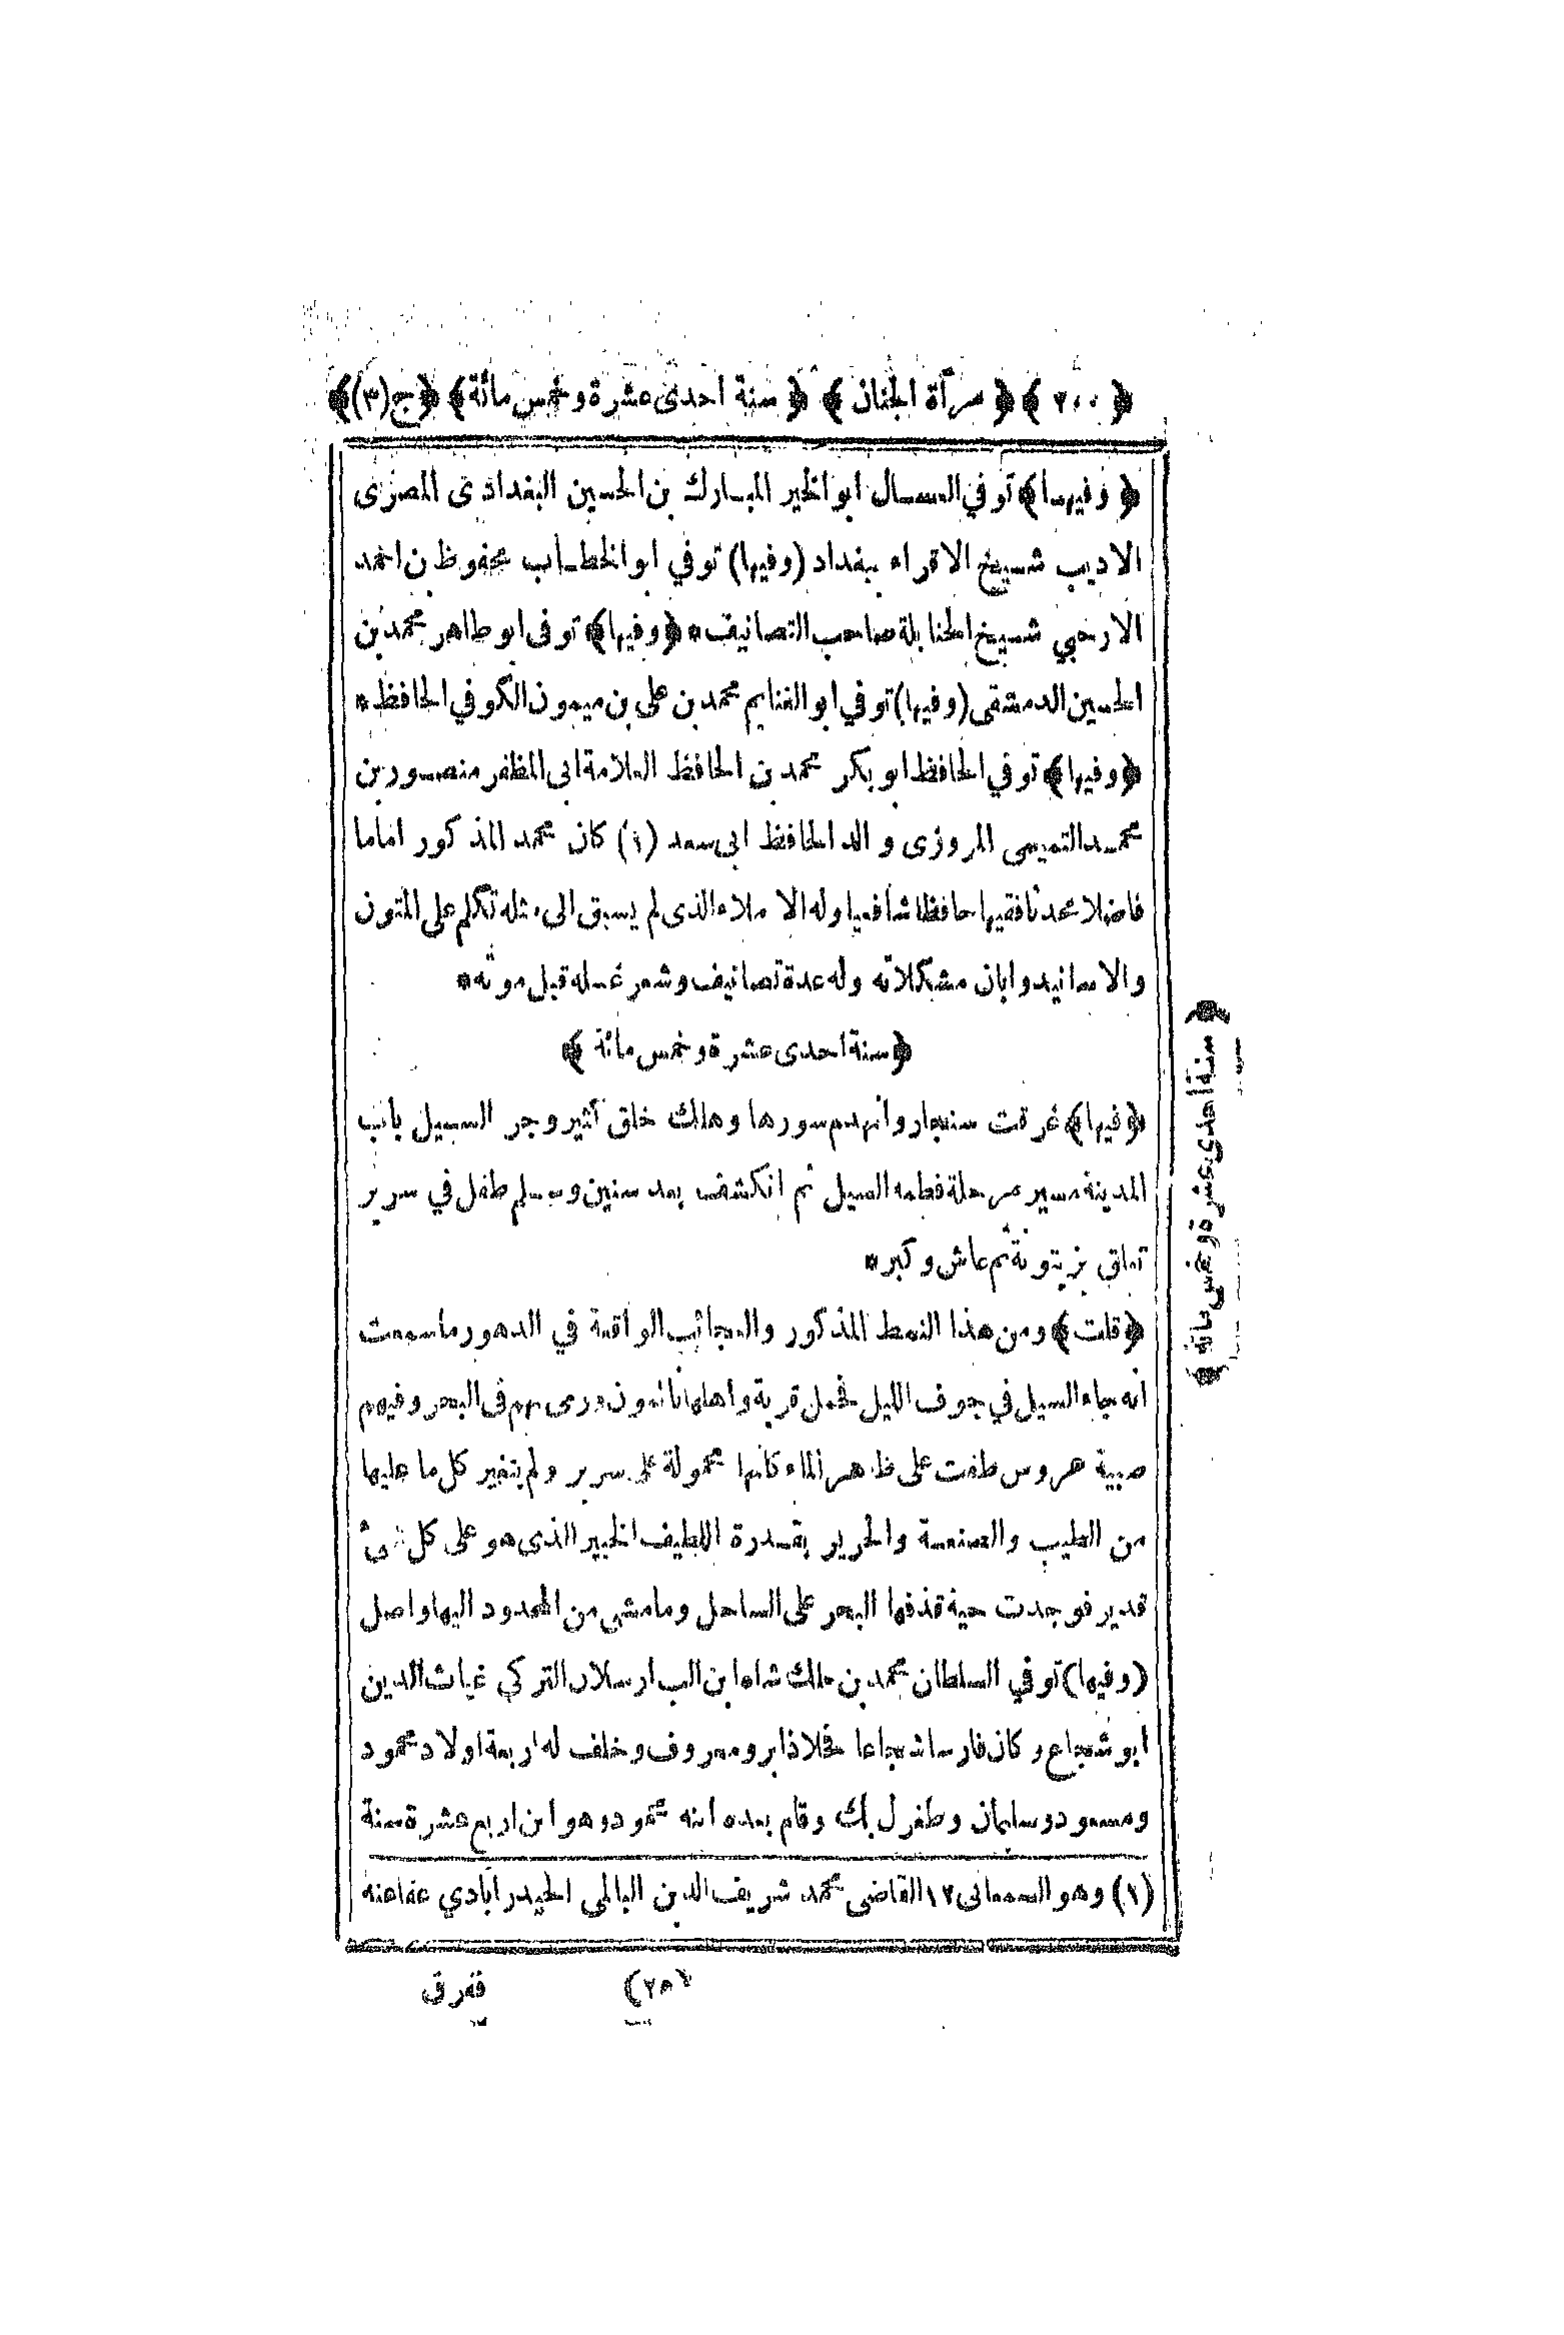 ﴿ ٢٠٠ ﴾ ﴿ مرآة الجنان ﴾ ﴿ سنة احدى عشرة وخمس مائة ﴾ ﴿ ج (٣) ﴾
﴿ وفيها ﴾ توفي العسال ابو الخير المبارك بن الحسين البغدادى المصرى
الاديب شيخ الاقراء ببغداد (وفيها) توفي ابو الخطاب محفوظ بن احمد
الارحبي شيخ الحنابلة صاحب التصانيف * ﴿ وفيها ﴾ توفى ابو طاهر محمد بن
الحسين الدمشقى (وفيها) توفي ابو الغنايم محمد بن على بن ميمون الكوفي الحافظ *
﴿ وفيها ﴾ توفي الحافظ ابو بكر محمد بن الحافظ العلامة ابى المظفر منصور بن
محمد التميمى المروزى والد الحافظ ابى سعد (١) كان محمد المذكور اماما
فاضلا محدثا فقيها حافظا شافعيا وله الاملاء الذى لم يسبق الى مثله تكلم على المتون
والاسانيد وابان مشكلاته وله عدة تصانيف وشعر غسله قبل موته *
﴿ سنة احدى عشرة وخمس مائة ﴾
﴿ فيها ﴾ غرقت سنجار وانهدم سورها وهلك خلق كثير وجر السبيل باب
المدينة مسير مرحلة فطمه السيل ثم انكشف بعد سنين وسلم طفل في سرير
تعلق بزيتونة ثم عاش وكبر *
﴿ قلت ﴾ ومن هذا النمط المذكور والعجائب الواقعة في الدهور ما سمعت
انه جاء السيل في جوف الليل فحمل قرية واهلها نائمون ورمى بهم فى البحر وفيهم
صبية عروس طفت على ظهر الماء كانها محمولة على سرير ولم يتغير كل ما عليها
من الطيب والصنعة والحرير بقدرة اللطيف الخبير الذى هو على كل شئ
قدير فوجدت حية قذفها البحر على الساحل وما مشى من المعدود اليها واصل
(وفيها) توفي السلطان محمد بن ملك شاه ابن الب ارسلان التركي غياث الدين
ابو شجاع وكان فارسا شجاعا فحلا ذا بر ومعروف وخلف له اربعة اولاد محمود
ومسعود وسليمان وطغرل بك وقام بعده ابنه محمود وهو ابن اربع عشرة سنة
(١) وهو السمعانى ١٢ القاضى محمد شريف الدين البالمى الحيدرابادي عفا عنه
(٢٥)
ففرق
﴿ سنة احدى عشرة وخمس مائة ﴾